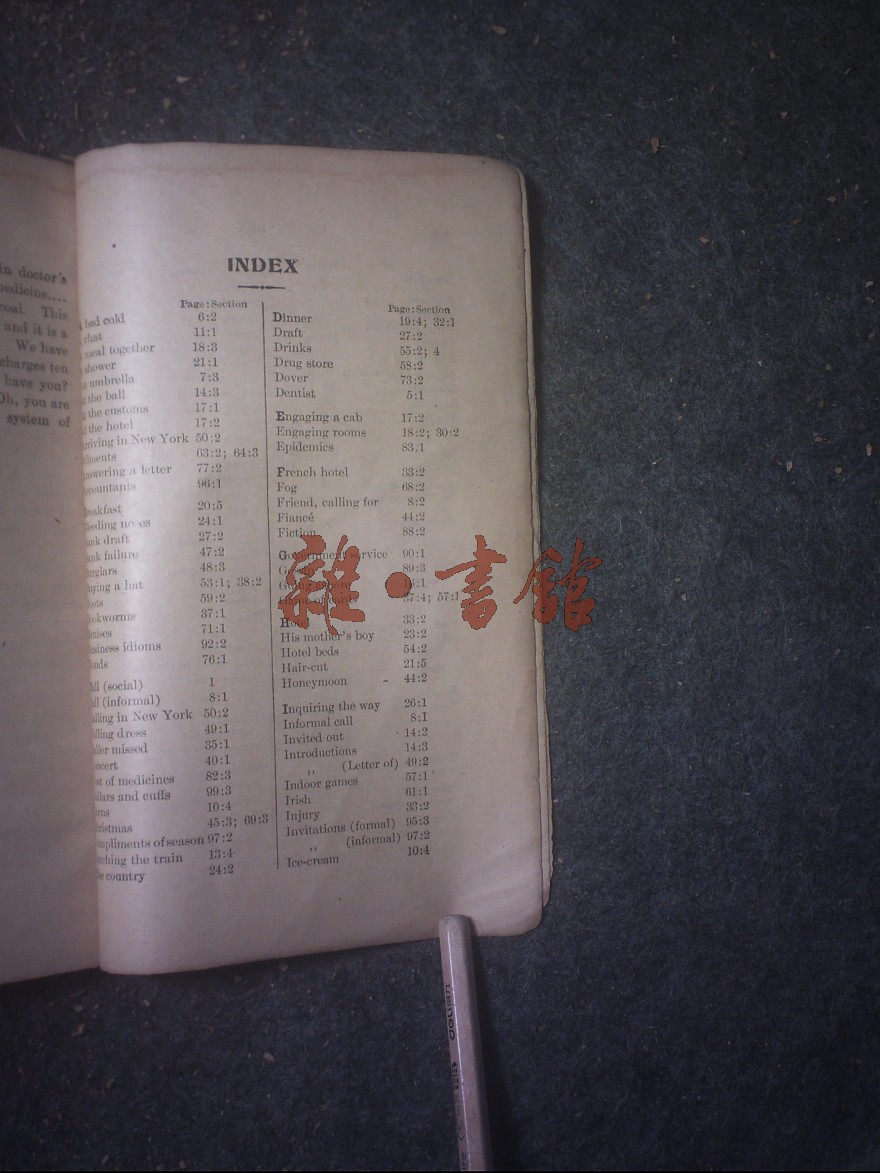 in doctor's
medicine....
coal. This
and it is a
We have
charges ten
have you?
Oh, you are
system of
INDEX
Page:Section
bad cold 6:2
chat 11:1
meal together 18:3
shower 21:1
umbrella 7:3
the ball 14:3
the customs 17:1
the hotel 17:2
rriving in New York 50:2
ilments 63:2; 64:3
nswering a letter 77:2
ccountants 96:1
reakfast 20:5
leeding noses 24:1
ank draft 27:2
ank failure 47:2
urglars 48:3
uying a hat 53:1; 38:2
oots 59:2
ookworms 37:1
ruises 71:1
usiness idioms 92:2
onds 76:1
all (social) 1
all (informal) 8:1
alling in New York 50:2
alling dress 49:1
aller missed 35:1
oncert 40:1
ost of medicines 82:3
ollars and cuffs 99:3
orns 10:4
hristmas 45:3; 69:3
ompliments of season 97:2
atching the train 13:4
country 24:2
Page:Section
Dinner 19:4; 32:1
Draft 27:2
Drinks 55:2; 4
Drug store 58:2
Dover 73:2
Dentist 5:1
Engaging a cab 17:2
Engaging rooms 18:2; 30:2
Epidemics 83:1
French hotel 33:2
Fog 68:2
Friend, calling for 8:2
Fiancé 44:2
Fiction 88:2
Government service 90:1
89:3
Going
Games of cards 37:4; 57:1
Hotel 33:2
His mother's boy 23:2
Hotel beds 54:2
Hair-cut 21:5
Honeymoon – 44:2
Inquiring the way 26:1
Informal call 8:I
Invited out 14:2
Introductions 14:3
,, (Letter of) 49:2
Indoor games 57:1
Irish 61:1
Injury 33:2
Invitations (formal) 95:3
,, (informal) 97:2
Ice-cream 10:4
雜·書館